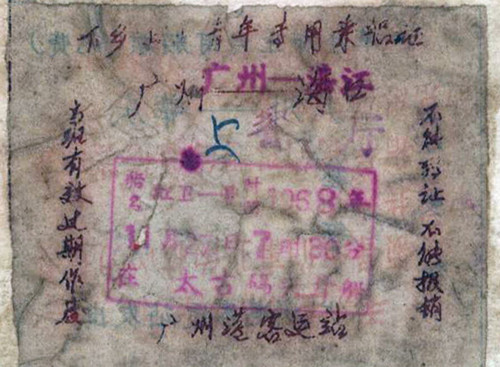 下乡上山青年专用乘船证
广州—湛江
广州 湛
上
船名 红卫一号 1968年
11月 日7时30分
在太古码头开船
当班有效过期作废
不能转让 不能报销
广州港客运站